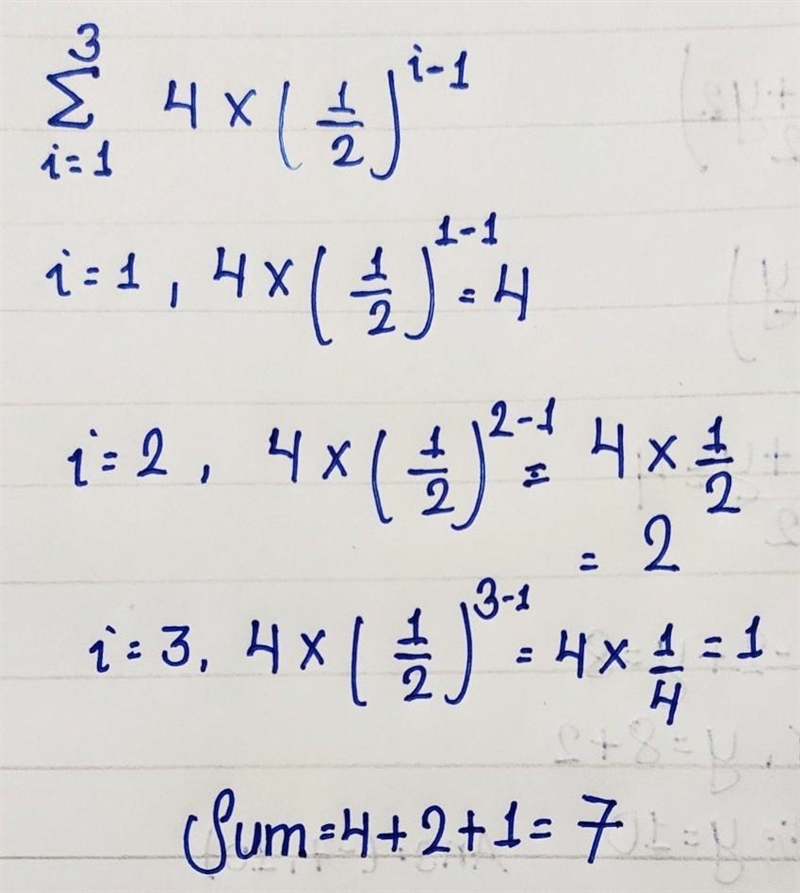 3
∑ 4 × (1/2)^(i-1)
i=1
i=1, 4 × (1/2)^(1-1) = 4
i=2, 4 × (1/2)^(2-1) = 4 × 1/2
= 2
i=3, 4 × (1/2)^(3-1) = 4 × 1/4 = 1
Sum=4+2+1=7